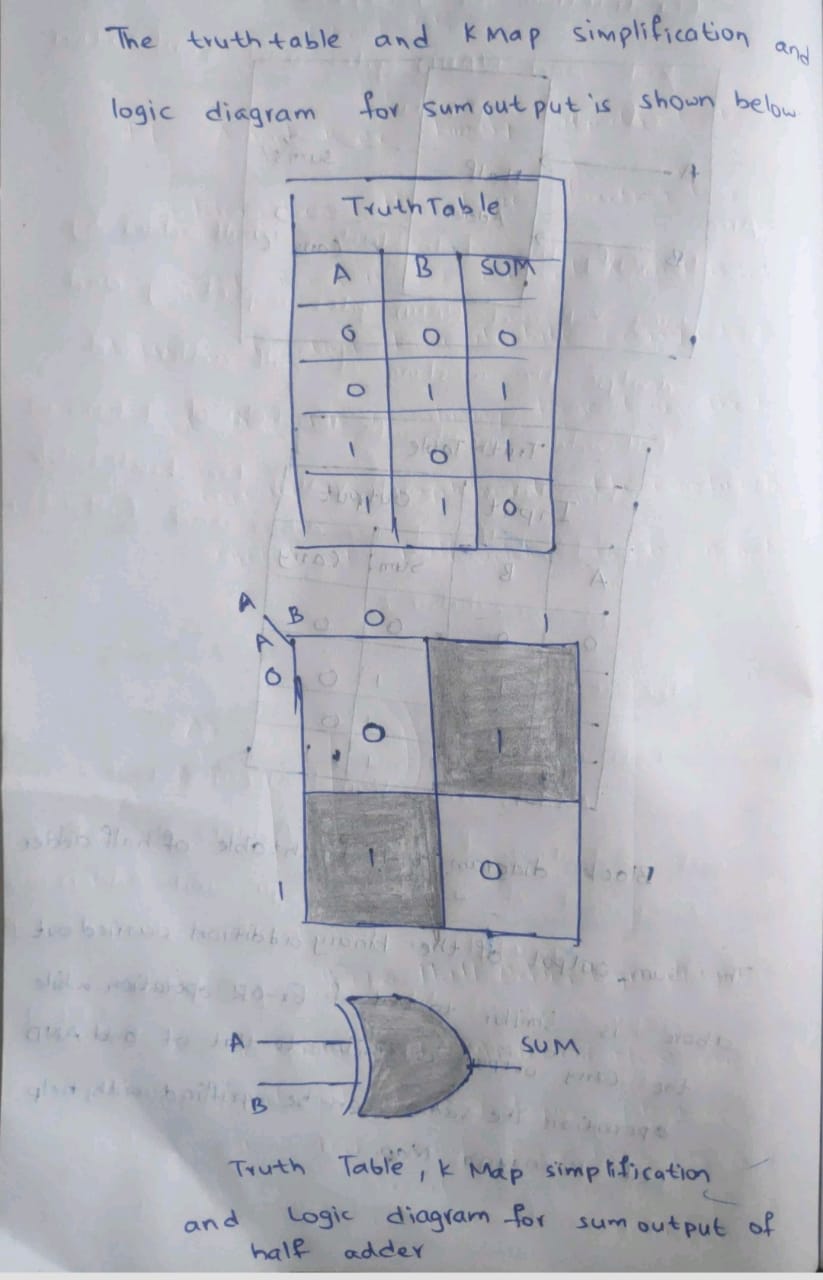 The truth table and K Map simplification and
logic diagram for sum output is shown below
Truth Table
A B SUM
0 0 0
0 1 1
1 0 1
1 1 0
A B 0 1
A
0
0 1
1 1 0
A SUM
B
Truth Table, K Map simplification
and Logic diagram for sum output of
half adder